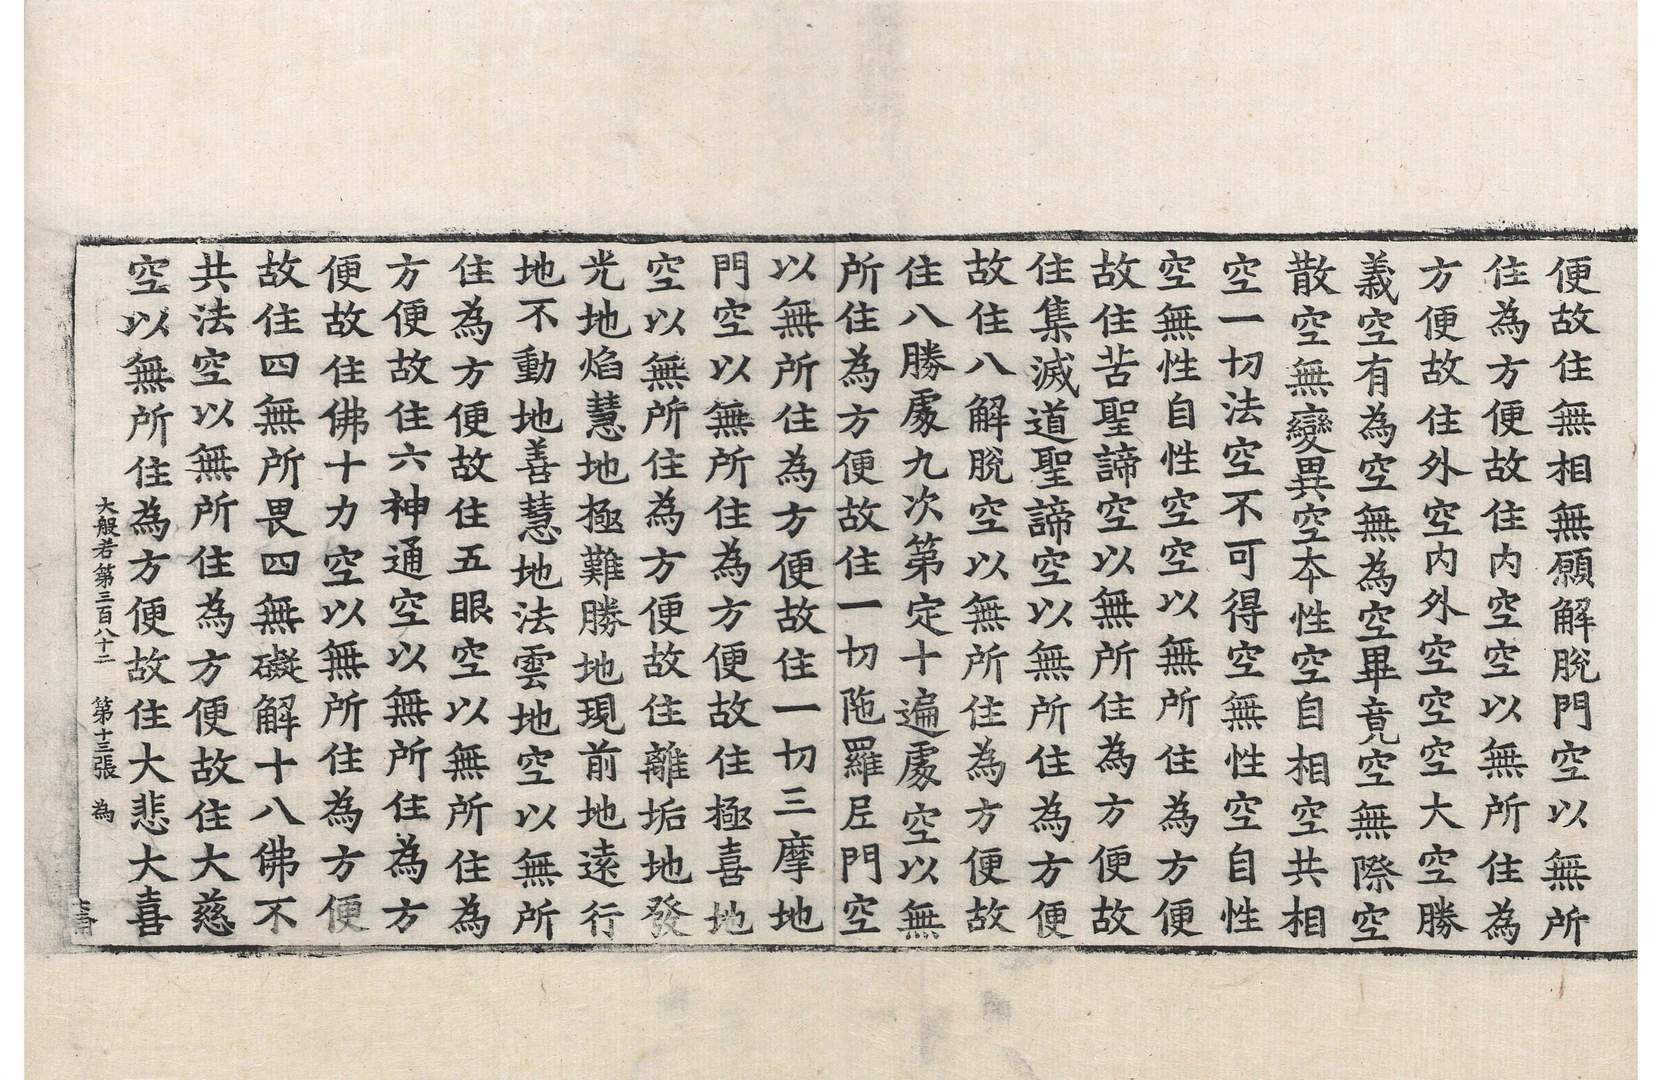 便故住無相無願解脫門空以無所
住為方便故住内空空以無所住為
方便故住外空内外空空空大空勝
義空有為空無為空畢竟空無際空
散空無變異空本性空自相空共相
空一切法空不可得空無性空自性
空無性自性空空以無所住為方便
故住苦聖諦空以無所住為方便故
住集滅道聖諦空以無所住為方便
故住八解脫空以無所住為方便故
住八勝處九次第定十遍處空以無
所住為方便故住一切陁羅尼門空
以無所住為方便故住一切三摩地
門空以無所住為方便故住極喜地
空以無所住為方便故住離垢地發
光地焰慧地極難勝地現前地遠行
地不動地善慧地法雲地空以無所
住為方便故住五眼空以無所住為
方便故住六神通空以無所住為方
便故住佛十力空以無所住為方便
故住四無所畏四無礙解十八佛不
共法空以無所住為方便故住大慈
空以無所住為方便故住大悲大喜
大般若第三百八十二 第十三張 為